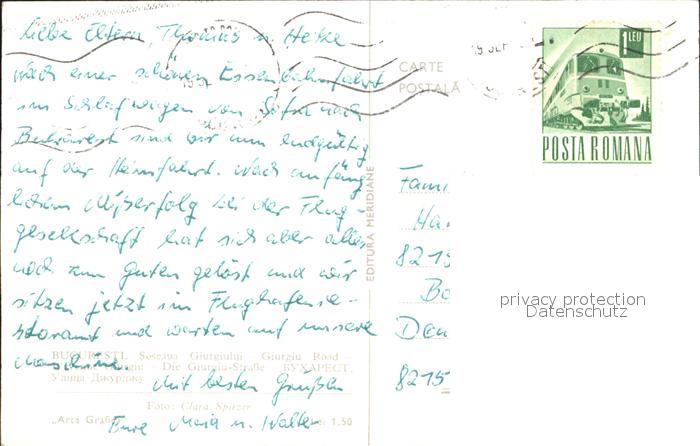 Liebe Eltern, Thomas u. Heike
Nach einer schönen Eisenbahnfahrt
im Schlafwagen von Sofia nach
Bukarest sind wir nun endgültig
auf der Heimfahrt. Nach anfäng-
lichem Mißerfolg bei der Flug-
gesellschaft hat sich aber alles
noch zum Guten gelöst und wir
sitzen jetzt im Flughafenre-
storant und warten auf unsere
Maschine.
Mit besten Grüßen
Eure Maia u. Walter
BUCUREŞTI. Şoseaua Giurgiului Giurgiu Road
Die Giurgiu-Straße БУХАРЕСТ.
Улица Джурджу
Foto: Clara Spitzer
„Arta Grafi
1,50
EDITURA MERIDIANE
CARTE
POSTALĂ
19 SEP
1 LEU
POSTA ROMANA
Fami
Ha
8215
Bo
8215
privacy protection
Datenschutz